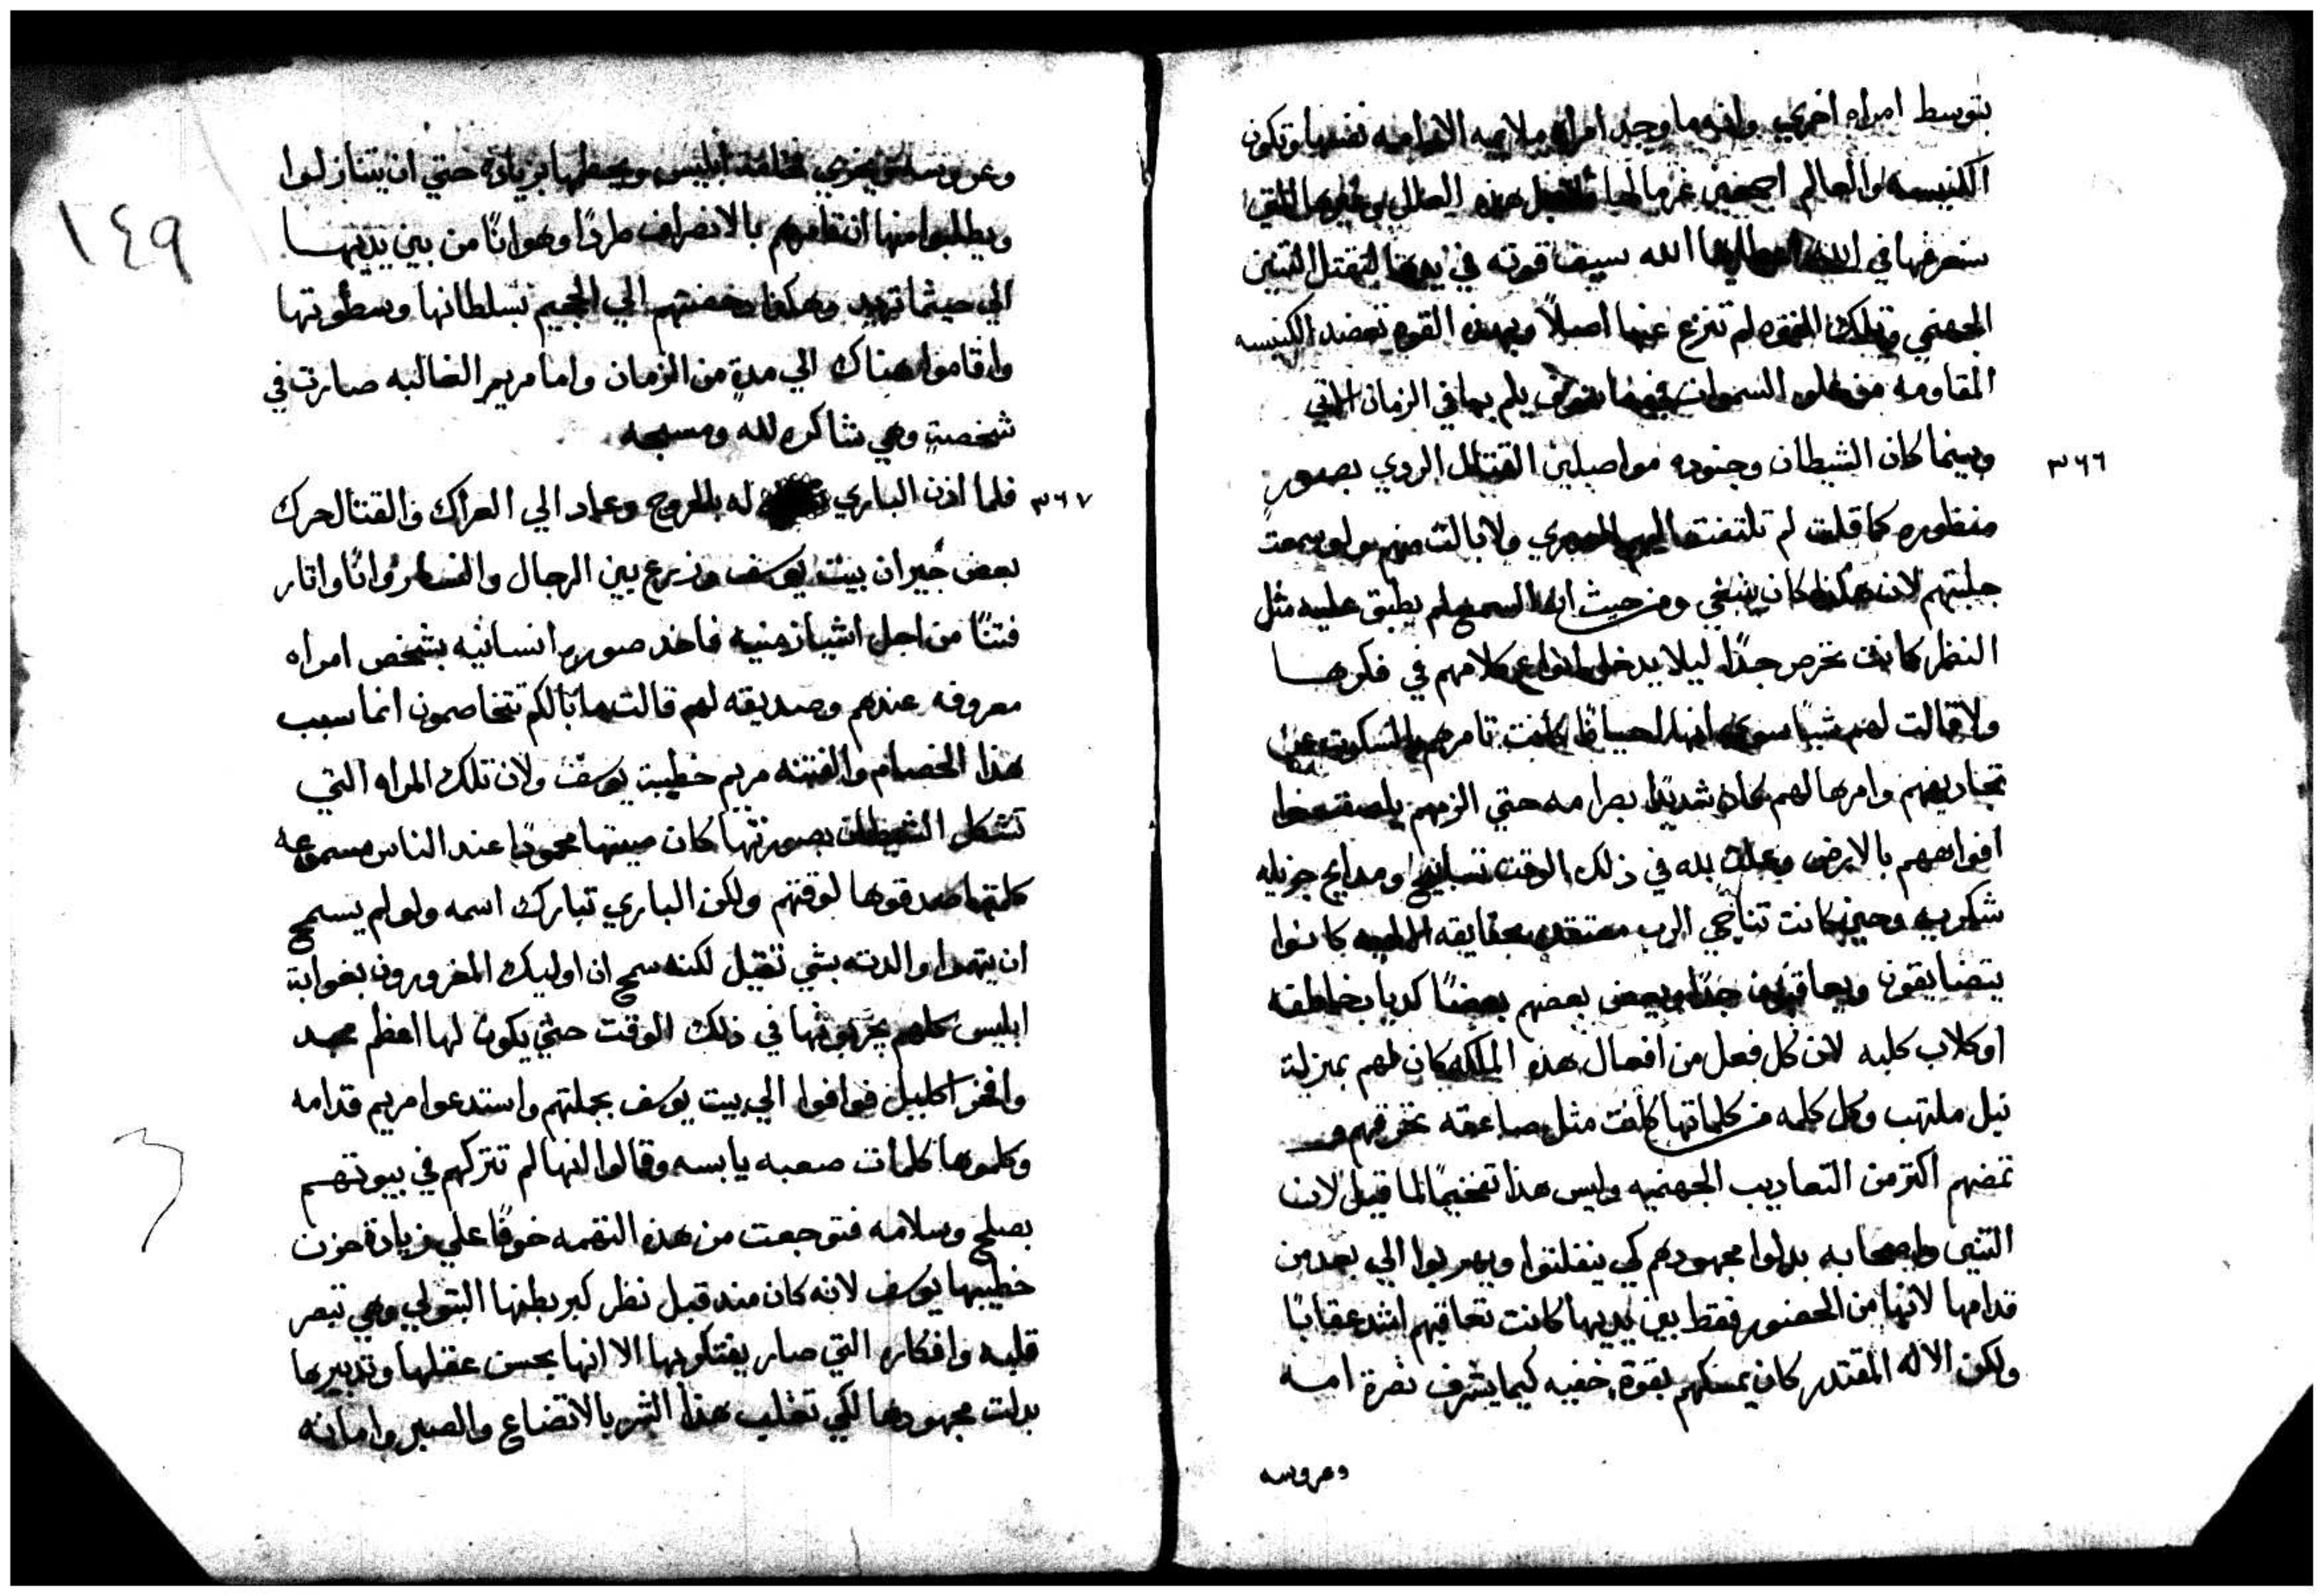 بتوسط امراه اخري وانه ما وجد امراه ملايمه الا امه نفسها وتكون
الكنيسه والعالم اجمعين غرما لها لاجل هذه الفضايل وغيرها التي
سنعرفها في الله اعطاها الله سيف قوته في يدها لتقتل التنين
الجهنمي وتلك القوه لم تنزع عنها اصلاً وبهذه القوه تعضد الكنيسه
المقاومه من علو السموات فيما سوف يلم بها في الزمان الاتي
٣٦٦
وبينما كان الشيطان وجنوده مواصلين القتال الردي بصور
منظوره كما قلت لم تلتفت اليهم البصري ولا بالت منهم ولو سمعت
جلبتهم لان هكذا كان ينبغي ومن حيث ان السمع لم يطبق عليه مثل
النظر كانت تحرص جدًا ليلا يدخل انواع كلامهم في فكرها
ولا قالت لهم شيًا سوي انها احيانًا كانت تامرهم بالسكوت عن
تجاديفهم وامرها لهم كان شديدًا بصرامه حتي الزمهم يلصقوا
افواههم بالارض وعملت لله في ذلك الوقت تسابيح ومدايح جزيله
شكريه وحين كانت تناجي الرب معتقده بحقايقه الالهيه كانوا
يتضايقون ويعاقبون جدًا ويعض بعضهم بعضًا كدياب خاطفه
او كلاب كلبه لان كل فعل من افعال هذه الملكه كان لهم بمنزلة
نبل ملتهب وكل كلمه من كلماتها كانت مثل صاعقه تحرقهم و
تمضهم اكتر من التعاديب الجهنميه وليس هذا تفخيمًا لما قيل لان
التنين واصحابه بدلوا مجهودهم كي ينفلتوا ويهربوا الي بعد من
قدامها لانها من الحضور فقط بين يديها كانت تعاقبهم اشد عقابًا
ولكن الاله المقتدر كان يمسكهم بقوة خفيه كيما يشرف نصرة امه
وعروسه
١٤٩
وعروسته ويخزي عظمة ابليس ويحطها بزيادة حتي ان يتنازلوا
ويطلبوا منها ان تامرهم بالانصراف طردًا وهوانًا من بين يديها
الي حيثما تريد وهكذا دفعتهم الي الجحيم بسلطانها وسطوتها
واقاموا هناك الي مدةٍ من الزمان واما مريم الغالبه صارت في
شخصيةٍ وهي شاكره لله ومسبحه
٣٦٧
فلما اذن الباري له بالخروج وعاد الي العراك والقتال حرك
بعض جيران بيت يوسف وزرع بين الرجال والنساء زوانًا واتار
فتنًا من اجل اشيا زمنيه فاخد صوره انسانيه بشخص امراه
معروفه عندهم وصديقه لهم قالت ما بالكم تتخاصمون انما سبب
هذا الخصام والفتنه مريم خطيبة يوسف ولان تلك المراه التي
تشكل الشيطان بصورتها كان صيتها محمودًا عند الناس مسموعه
كلمتها صدقوها لوقتهم ولكن الباري تبارك اسمه ولو لم يسمح
ان يتهموا والدته بشي تقيل لكنه سمح ان اوليك المغرورون بغواية
ابليس كلهم يجربونها في ذلك الوقت حتي يكون لها اعظم مجد
وافخر اكليل فوافوا الي بيت يوسف بجملتهم واستدعوا مريم قدامه
وكلموها كلمات صعبه يابسه وقالوا انها لم تتركهم في بيوتهم
بصلح وسلامه فتوجعت من هذه النقمه خوفًا علي زيادة حزن
خطيبها يوسف لانه كان مند قبل نظر كبر بطنها البتولي وهي تبصر
قلبه وافكاره التي صار يفتكر بها الا انها بحسن عقلها وتدبيرها
بدلت مجهودها لكي تغلب هذا الشر بالاتضاع والصبر وامانه